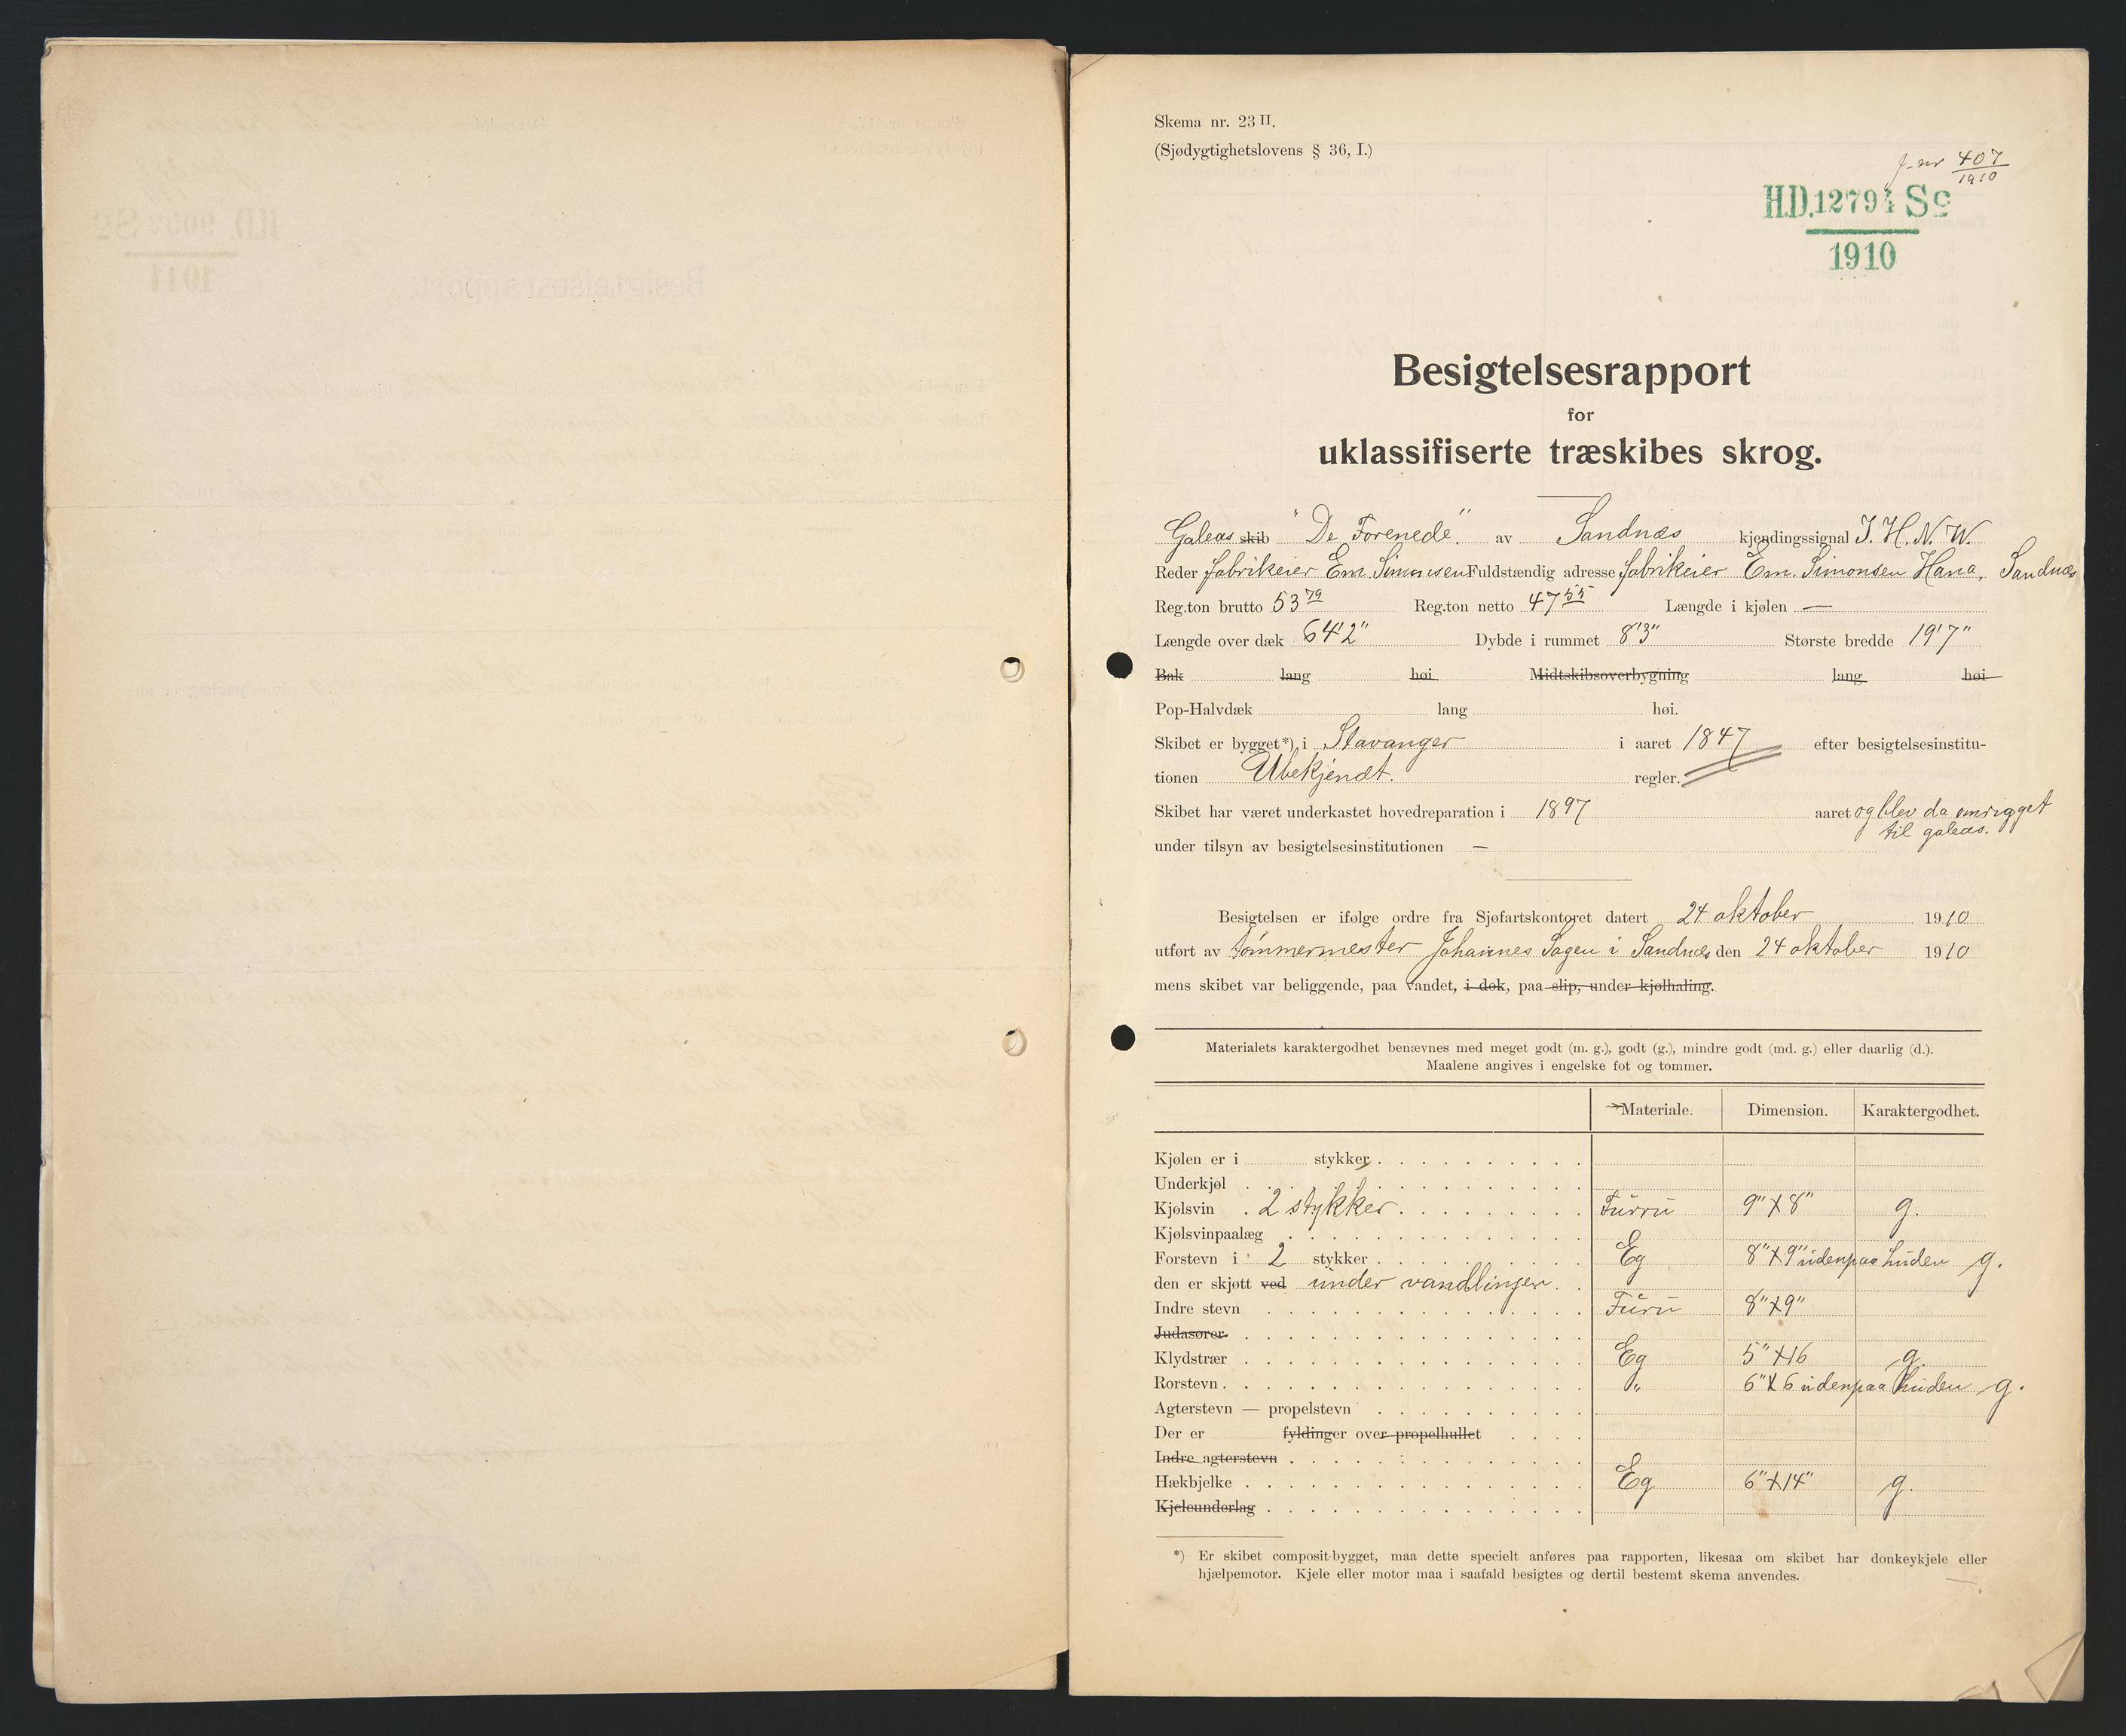 Skema nr. 23 II.
(Sjødygtighetslovens § 36, I.)
j-nr 407/1910
H.D. 12794 Sc
1910
Besigtelsesrapport
for
uklassifiserte træskibes skrog.
Galeas skib "De Forenede". av Sandnæs kjendingssignal J. H. N. W.
Reder fabrikeier Em. Simonsen Fuldstændig adresse fabrikeier Em. Simonsen Hana, Sandnæs
Reg.ton brutto 53 79 Reg.ton netto 47 55 Længde i kjølen —
Længde over dæk 64'2" Dybde i rummet 8'3" Største bredde 19'7"
Bak lang høi Midtskibsoverbygning lang høi
Pop-Halvdæk lang høi.
Skibet er bygget*) i Stavanger i aaret 1847 efter besigtelsesinstitu-
tionen Ubekjendt. regler.
Skibet har været underkastet hovedreparation i 1897 aaret og blev da omrigget
til galeas.
under tilsyn av besigtelsesinstitutionen —
Besigtelsen er ifølge ordre fra Sjøfartskontoret datert 24 oktober 1910
utført av tømmermester Johannes Sagen i Sandnæs den 24 oktober 1910
mens skibet var beliggende, paa vandet, i dok, paa slip, under kjølhaling.
Materialets karaktergodhet benævnes med meget godt (m. g.), godt (g.), mindre godt (md. g.) eller daarlig (d.).
Maalene angives i engelske fot og tommer.
Materiale. Dimension. Karaktergodhet.
Kjølen er i stykker
Underkjøl
Kjølsvin 2 stykker Furru 9" x 8" g.
Kjølsvinpaalæg
Forstevn i 2 stykker Eg 8" x 9" udenpaa huden g.
den er skjøtt ved under vandlinjen
Indre stevn Furu 8" x 9"
Judasører
Klydstrær Eg 5" x 16 g.
Rorstevn " 6" x 6 udenpaa huden g.
Agterstevn — propelstevn
Der er fyldinger over propelhullet
Indre agterstevn
Hækbjelke Eg 6" x 14" g.
Kjeleunderlag
*) Er skibet composit-bygget, maa dette specielt anføres paa rapporten, likesaa om skibet har donkeykjele eller
hjælpemotor. Kjele eller motor maa i saafald besigtes og dertil bestemt skema anvendes.